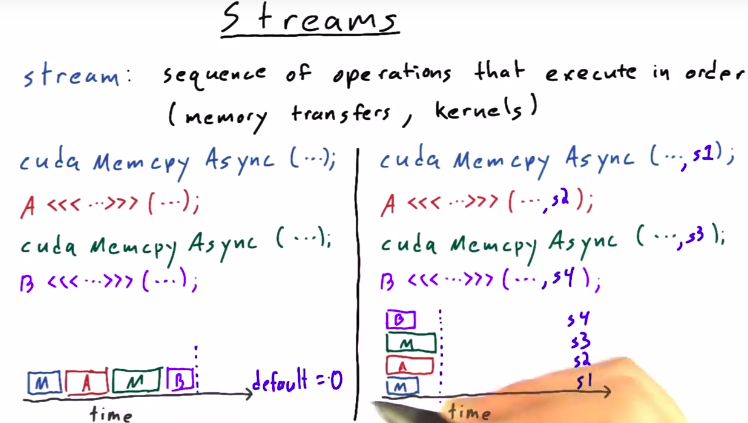 Streams
stream: sequence of operations that execute in order
(memory transfers, kernels)
cuda Memcpy Async (...);
A <<< ... >>> (...);
cuda Memcpy Async (...);
B <<< ... >>> (...);
M A M B
default = 0
time
cuda Memcpy Async (..., s1);
A <<< ... >>> (..., s2);
cuda Memcpy Async (..., s3);
B <<< ... >>> (..., s4);
B s4
M s3
A s2
M s1
time